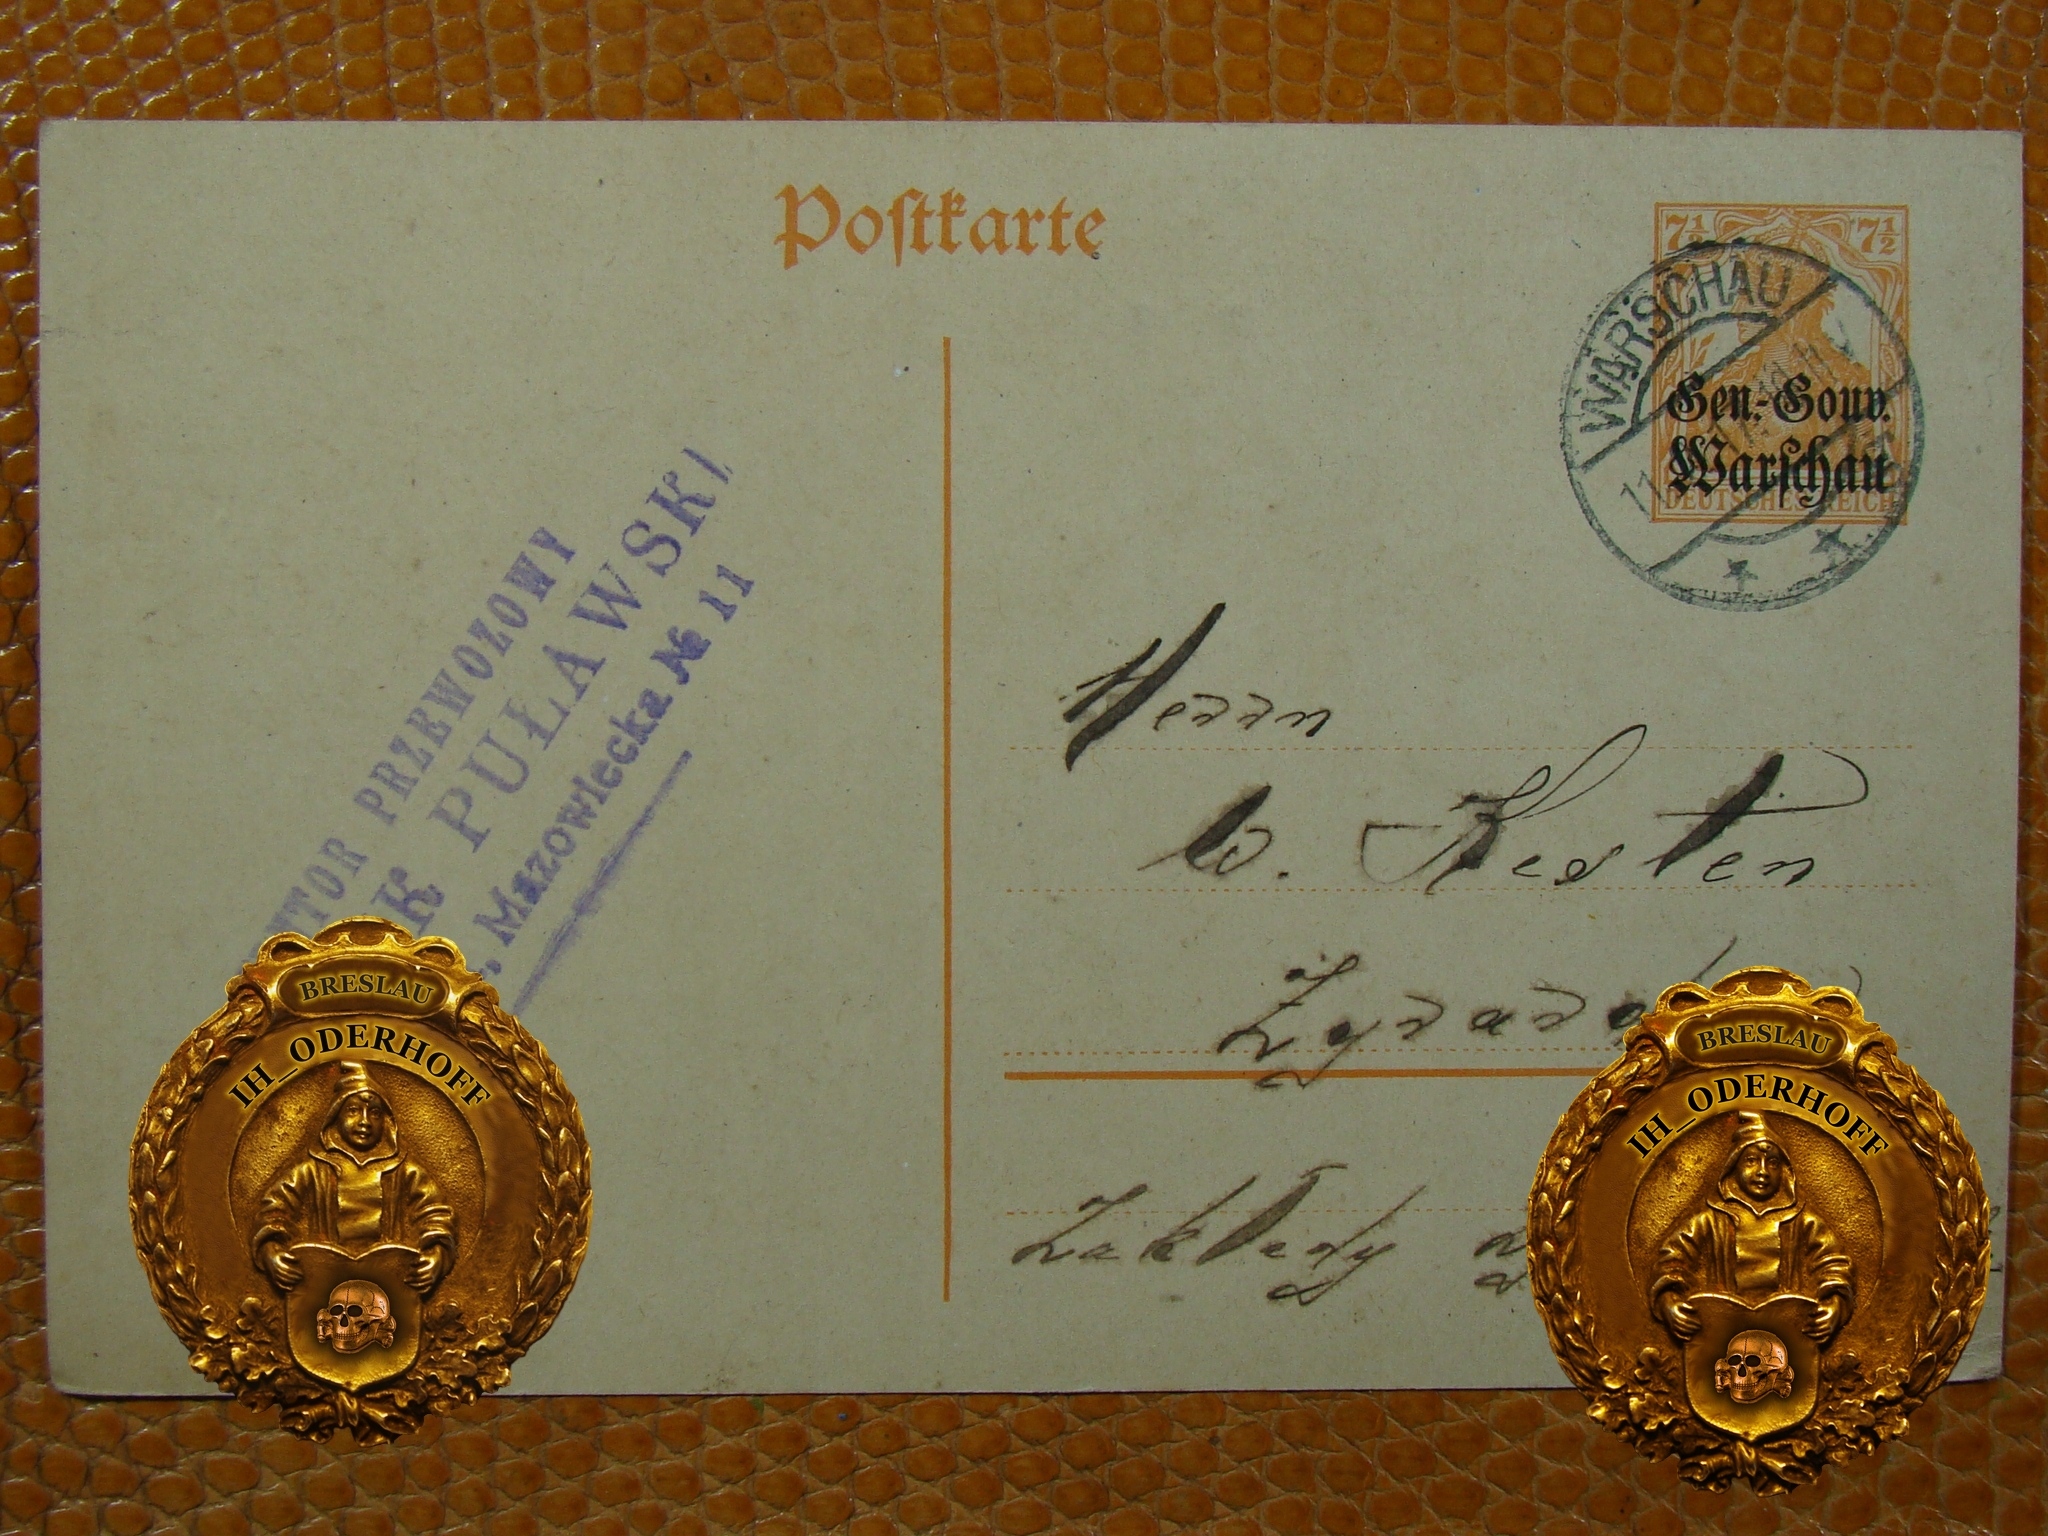 Postkarte
7½ 7½
WARSCHAU
Gen.-Gouv.
Warschau
DEUTSCHES REICH
11
NTOR PRZEWOZOWY
K PUŁAWSKI
Mazowiecka № 11
Herrn
W. Kesten
Zyrardo
Zaklady
BRESLAU
IH_ODERHOFF
BRESLAU
IH_ODERHOFF